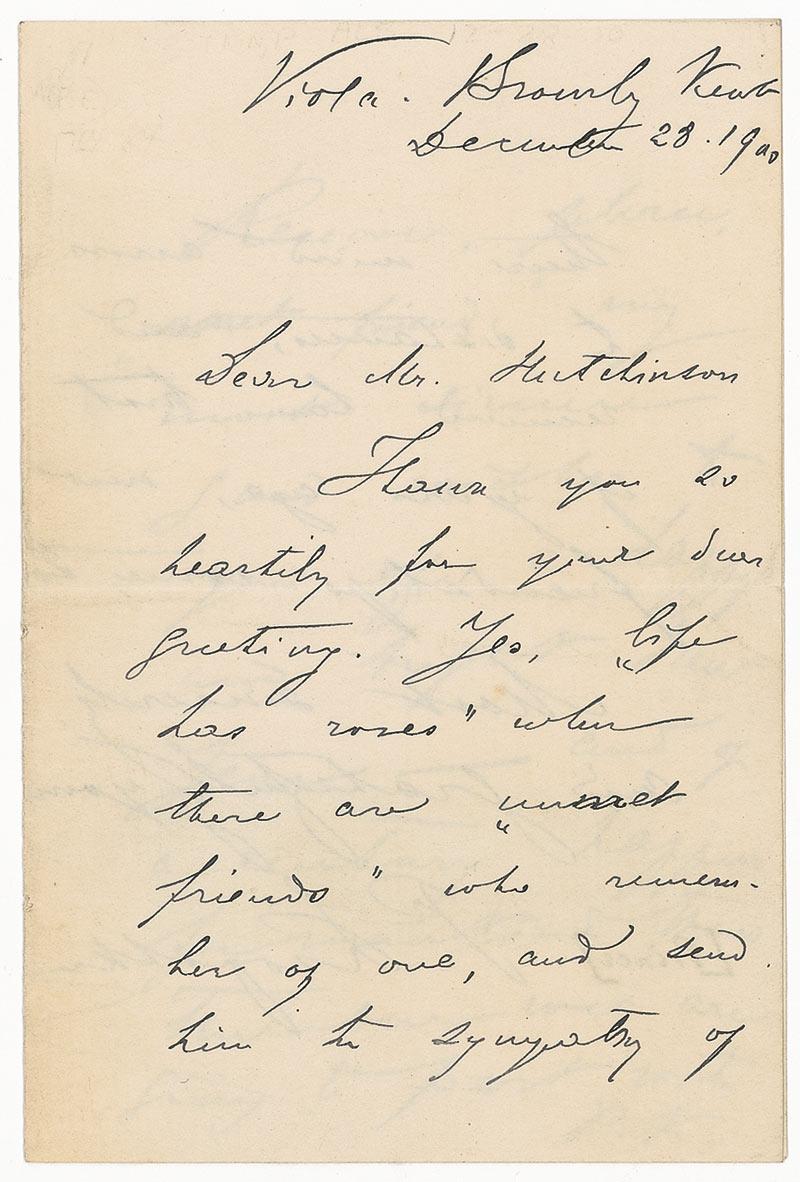 Viola. Bromley Kent
December 28. 1900
Dear Mr. Hutchinson
Thank you so
heartily for your dear
greeting. Yes, „life
has roses" when
there are „unmet
friends" who remem-
ber of one, and send
him the sympathy of